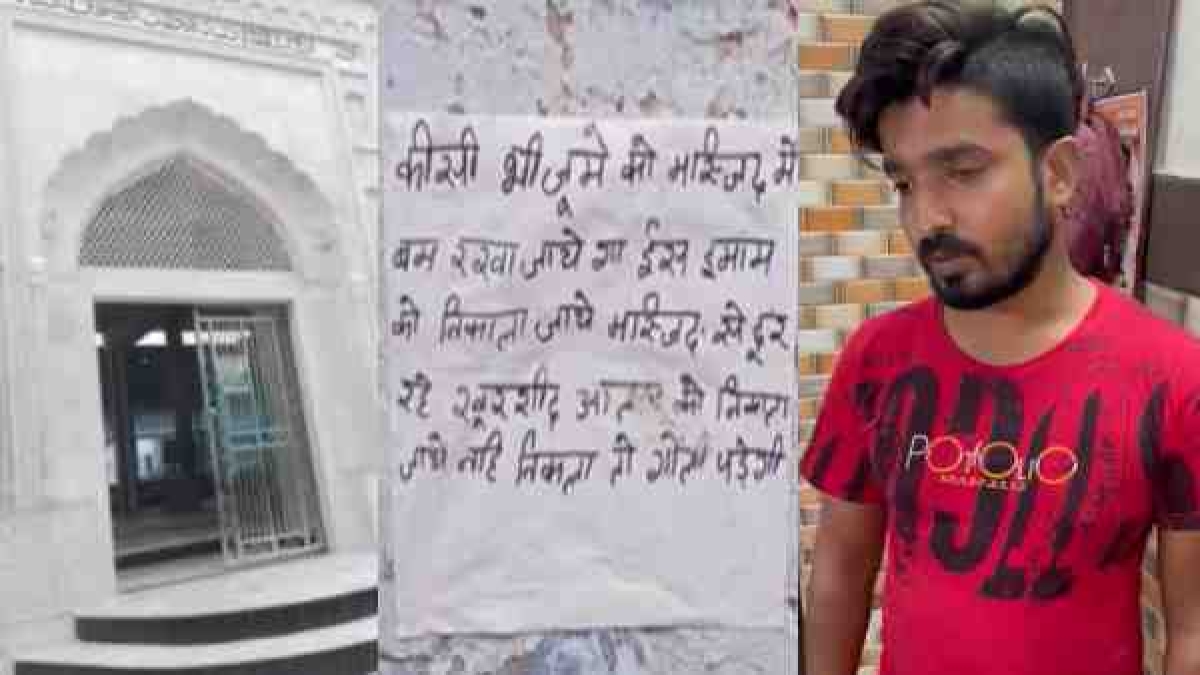 कीसी भी जूमे को मस्जिद में
बम रखा जाये गा ईस इमाम
को निकाला जाये मस्जिद से दूर
रहे खूरशीद आलम को निकाला
जाये नहि निकला तो गोली पड़ेगी
POYOLIO